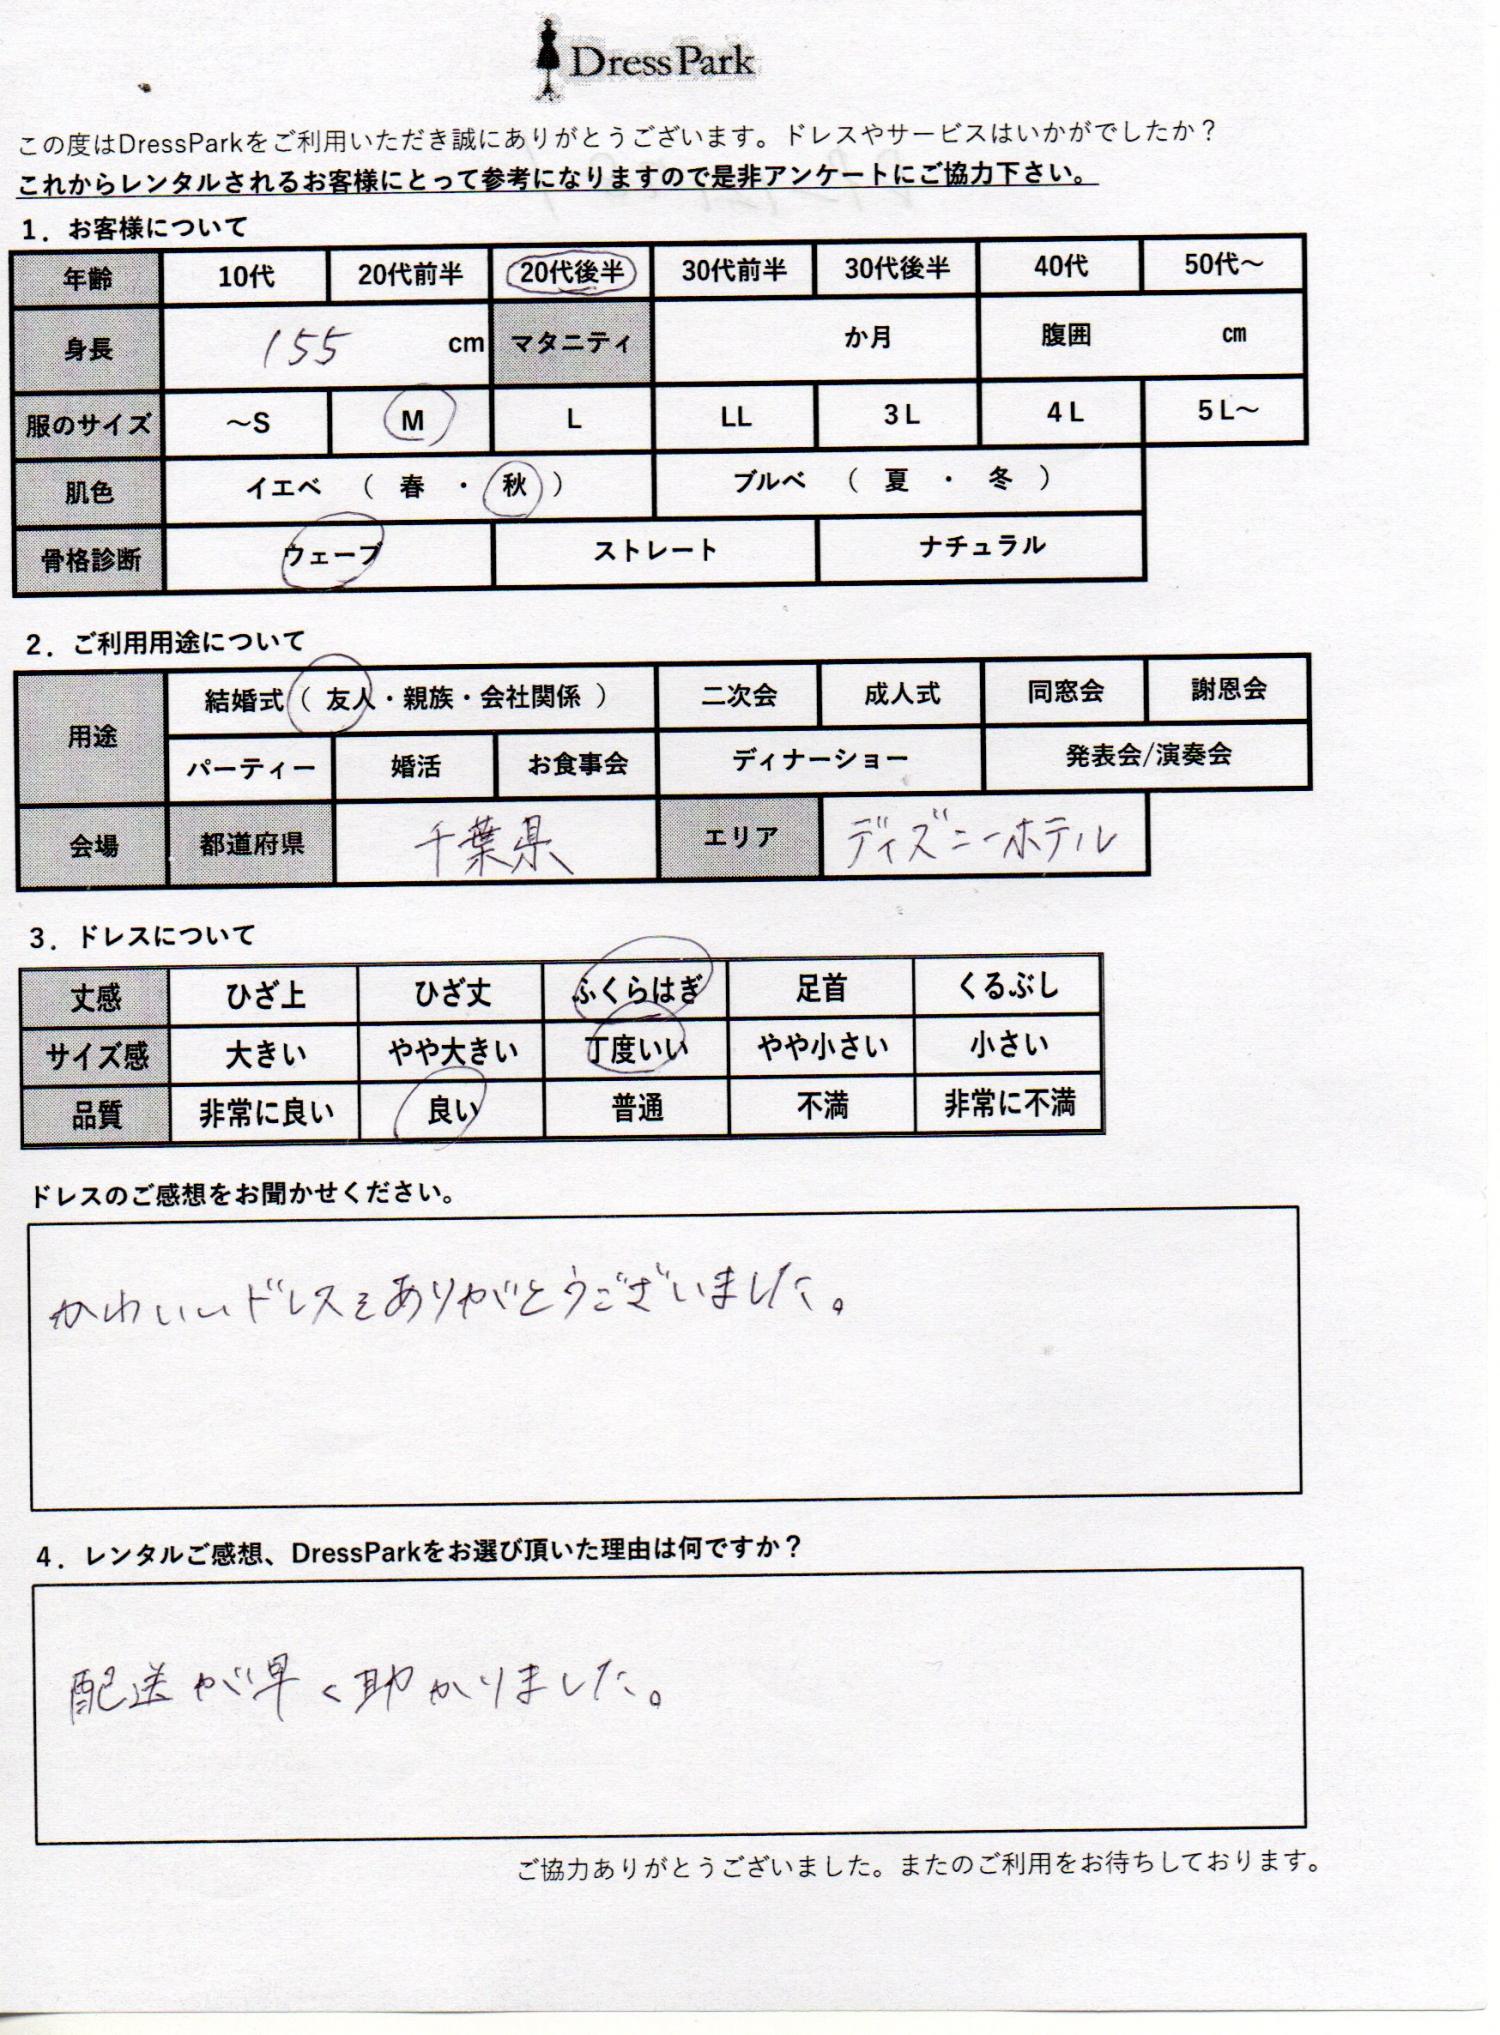 Dress Park
この度はDressParkをご利用いただき誠にありがとうございます。ドレスやサービスはいかがでしたか？
これからレンタルされるお客様にとって参考になりますので是非アンケートにご協力下さい。
1．お客様について
年齢 10代 20代前半 20代後半 30代前半 30代後半 40代 50代～
身長 155 cm マタニティ か月 腹囲 ㎝
服のサイズ ～S M L LL 3L 4L 5L～
肌色 イエベ （ 春 ・ 秋 ） ブルベ （ 夏 ・ 冬 ）
骨格診断 ウェーブ ストレート ナチュラル
2．ご利用用途について
用途 結婚式（ 友人・親族・会社関係 ） 二次会 成人式 同窓会 謝恩会
パーティー 婚活 お食事会 ディナーショー 発表会/演奏会
会場 都道府県 千葉県 エリア ディズニーホテル
3．ドレスについて
丈感 ひざ上 ひざ丈 ふくらはぎ 足首 くるぶし
サイズ感 大きい やや大きい 丁度いい やや小さい 小さい
品質 非常に良い 良い 普通 不満 非常に不満
ドレスのご感想をお聞かせください。
かわいいドレスをありがとうございました。
4．レンタルご感想、DressParkをお選び頂いた理由は何ですか？
配送が早く助かりました。
ご協力ありがとうございました。またのご利用をお待ちしております。